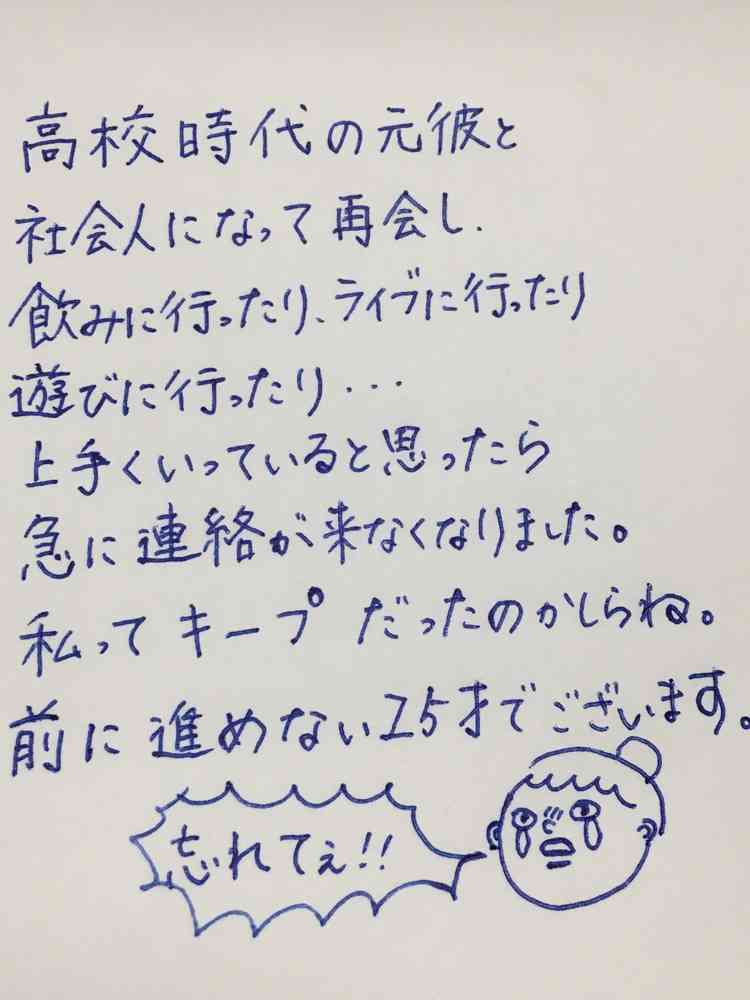 高校時代の元彼と
社会人になって再会し、
飲みに行ったり、ライブに行ったり
遊びに行ったり・・・
上手くいっていると思ったら
急に連絡が来なくなりました。
私ってキープだったのかしらね。
前に進めない25才でございます。
忘れてぇ!!